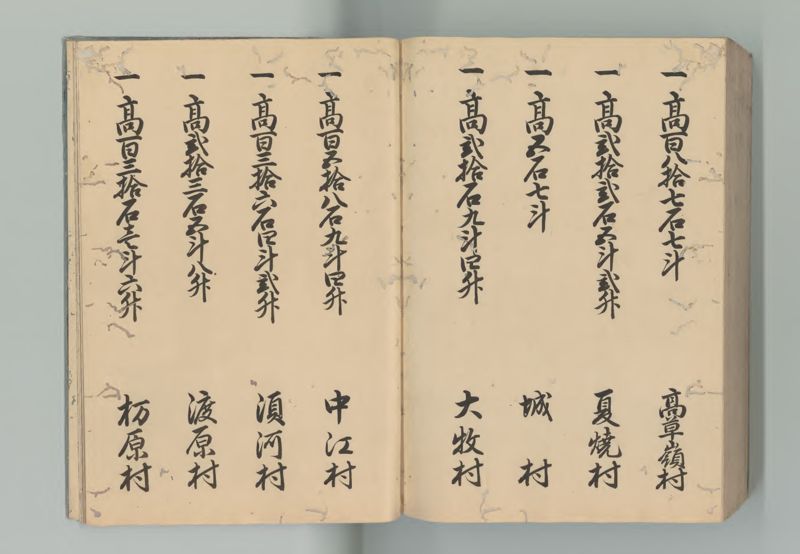 一高百八拾七石七斗 高草嶺村
一高弐拾弐石五斗弐升 夏焼村
一高五石七斗 城村
一高弐拾石九斗四升 大牧村
一高百五拾八石九斗四升 中江村
一高百三拾六石四斗弐升 須河村
一高弐拾三石五斗八升 渡原村
一高百三拾石壱斗六升 杤原村